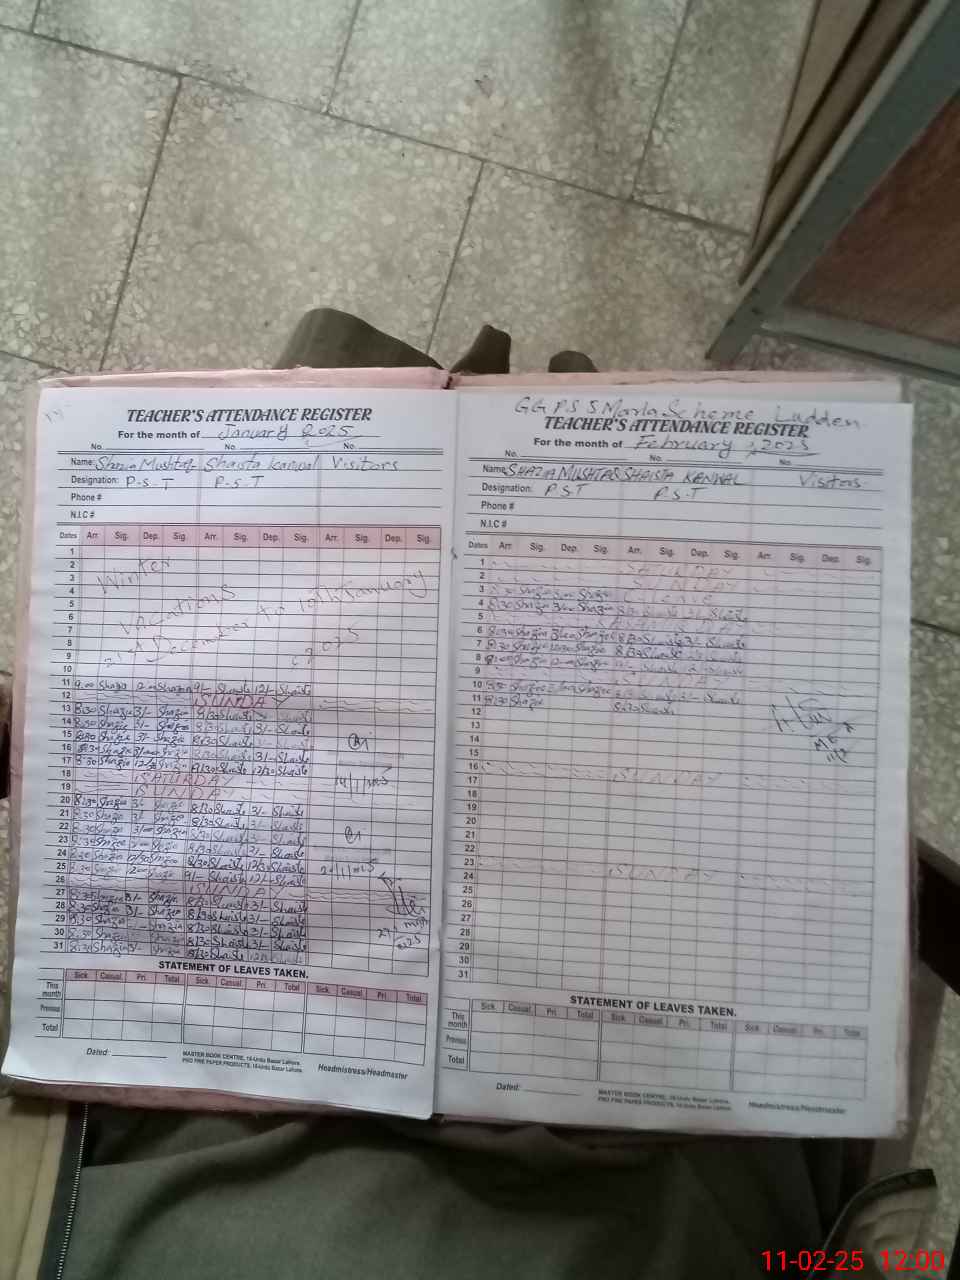 TEACHER'S ATTENDANCE REGISTER
For the month of January 2025
No. No. No.
Name: Shazia Mushtaq Shaista Kanwal Visitors
Designation: P-S-T P-S-T
Phone #
N.I.C #
Dates Arr. Sig. Dep. Sig. Arr. Sig. Dep. Sig. Arr. Sig. Dep. Sig.
1
2
3 Winter
4
5
6 Vacations
7
8 21st December to 10th January
9 2025
10
11 9:00 Shazia 12:00 Shazia 9/- Shaista 12/- Shaista
12 SUNDAY
13 8:30 Shazia 3/- Shazia 8/30 Shaista 3/- Shaista
14 8:30 Shazia 3/- Shazia 8/30 Shaista 3/- Shaista
15 8:30 Shazia 3/- Shazia 8/30 Shaista 3/- Shaista
16 8:30 Shazia Shazia 8/30 Shaista 3/- Shaista
17 8:30 Shazia Shazia 8/30 Shaista 12/30 Shaista
18 SATURDAY
19 SUNDAY
20 8:30 Shazia 3/- Shazia 8/30 Shaista 3/- Shaista
21 8:30 Shazia 3/- Shazia 8/30 Shaista 3/- Shaista
22 8:30 Shazia Shazia 8/30 Shaista 3/- Shaista
23 8:30 Shazia Shazia 8/30 Shaista Shaista
24 8:30 Shazia 12/30 Shazia 8/30 Shaista 12/30 Shaista
25 Shazia 12:00 Shazia 9/- Shaista 12/- Shaista
26 SUNDAY
27 8:30 Shazia 3/- Shazia 8/30 Shaista 3/- Shaista
28 8:30 Shazia 3/- Shazia 8/30 Shaista 3/- Shaista
29 8:30 Shazia Shazia 8/30 Shaista 3/- Shaista
30 8:30 Shazia Shazia 8/30 Shaista 3/- Shaista
31 8:30 Shazia Shazia 8/30 Shaista Shaista
STATEMENT OF LEAVES TAKEN.
Sick. Casual. Pri. Total Sick. Casual. Pri. Total Sick. Casual. Pri. Total
This month
Previous
Total
Dated:
MASTER BOOK CENTRE, 18-Urdu Bazar Lahore.
PRO FINE PAPER PRODUCTS, 18-Urdu Bazar Lahore
Headmistress/Headmaster
GGPS 5 Marla Scheme Ludden
TEACHER'S ATTENDANCE REGISTER
For the month of February 2025
No. No. No.
Name SHAZIA MUSHTAQ SHAISTA KANWAL Visitors
Designation: P S.T P S.T
Phone #
N.I.C #
Dates Arr. Sig. Dep. Sig. Arr. Sig. Dep. Sig. Arr. Sig. Dep. Sig.
1 SATURDAY
2 SUNDAY
3 8:30 Shazia Shazia C. leave
4 8:30 Shazia Shazia 8/30 Shaista 3/- Shaista
5
6 8:30 Shazia Shazia 8/30 Shaista 3/- Shaista
7 8:30 Shazia Shazia 8/30 Shaista Shaista
8 Shazia Shazia Shaista Shaista
9 SUNDAY
10 Shazia Shazia Shaista Shaista
11 8:30 Shazia 8/30 Shaista
12
13
14
15
16 SUNDAY
17
18
19
20
21
22
23 SUNDAY
24
25
26
27
28
29
30
31
STATEMENT OF LEAVES TAKEN.
Sick. Casual. Pri. Total Sick. Casual. Pri. Total Sick. Casual. Pri. Total
This month
Previous
Total
Dated:
MASTER BOOK CENTRE, 18-Urdu Bazar Lahore.
PRO FINE PAPER PRODUCTS, 18-Urdu Bazar Lahore
Headmistress/Headmaster
11-02-25 12:00